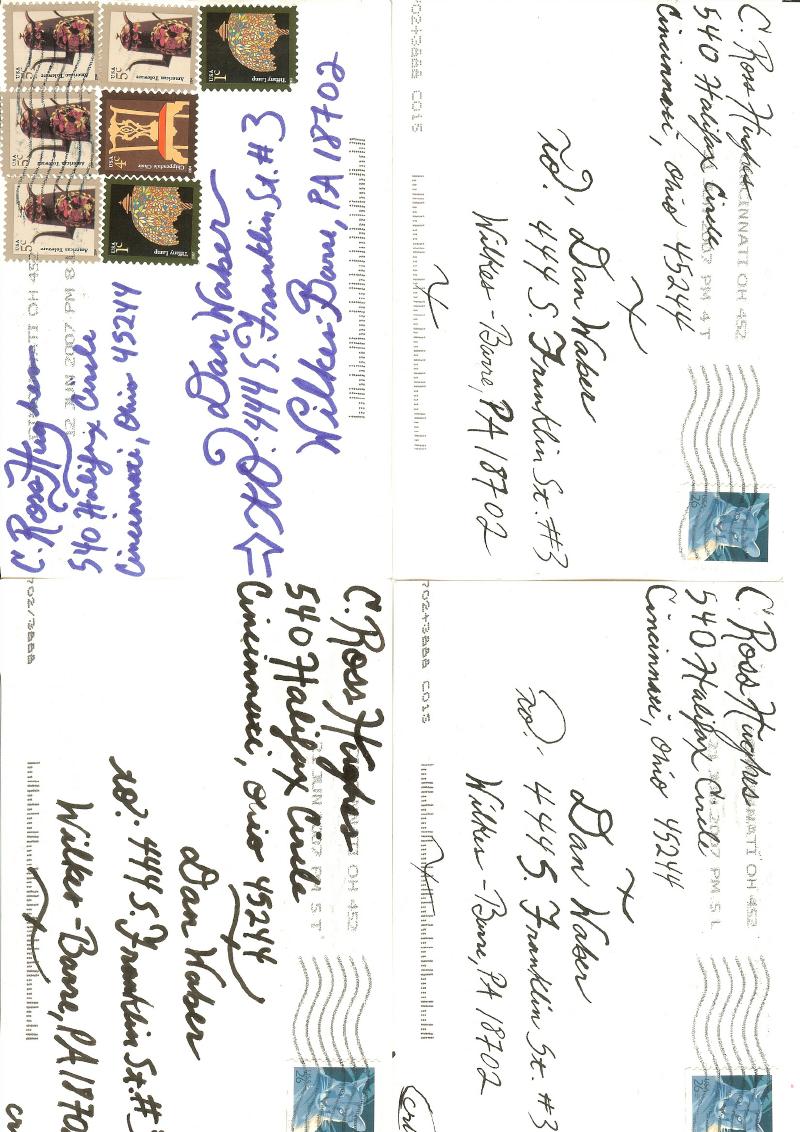 American Toleware
USA 5c
American Toleware
USA 5c
Tiffany Lamp
USA 1c
American Toleware
USA 5c
Chippendale Chair
USA 4c
American Toleware
USA 5c
Tiffany Lamp
USA 1c
C. Ross Hughes
540 Halifax Circle
Cincinnati, Ohio 45244
Dan Waber
to: 444 S. Franklin St. #3
Wilkes-Barre, PA 18702
C. Ross Hughes
540 Halifax Circle
Cincinnati, Ohio 45244
CINCINNATI OH 452
2007 PM 4 T
USA 26
Dan Waber
to: 444 S. Franklin St. #3
Wilkes-Barre, PA 18702
702+3888 C013
C. Ross Hughes
540 Halifax Circle
Cincinnati, Ohio 45244
OH 452
JUN 2007 PM 5 T
26
Dan Waber
to: 444 S. Franklin St. #
Wilkes-Barre, PA 1870
702+3888
C. Ross Hughes
540 Halifax Circle
Cincinnati, Ohio 45244
NATI OH 452
2007 PM 5 L
26
Dan Waber
to: 444 S. Franklin St. #3
Wilkes-Barre, PA 18702
702+3888 C013